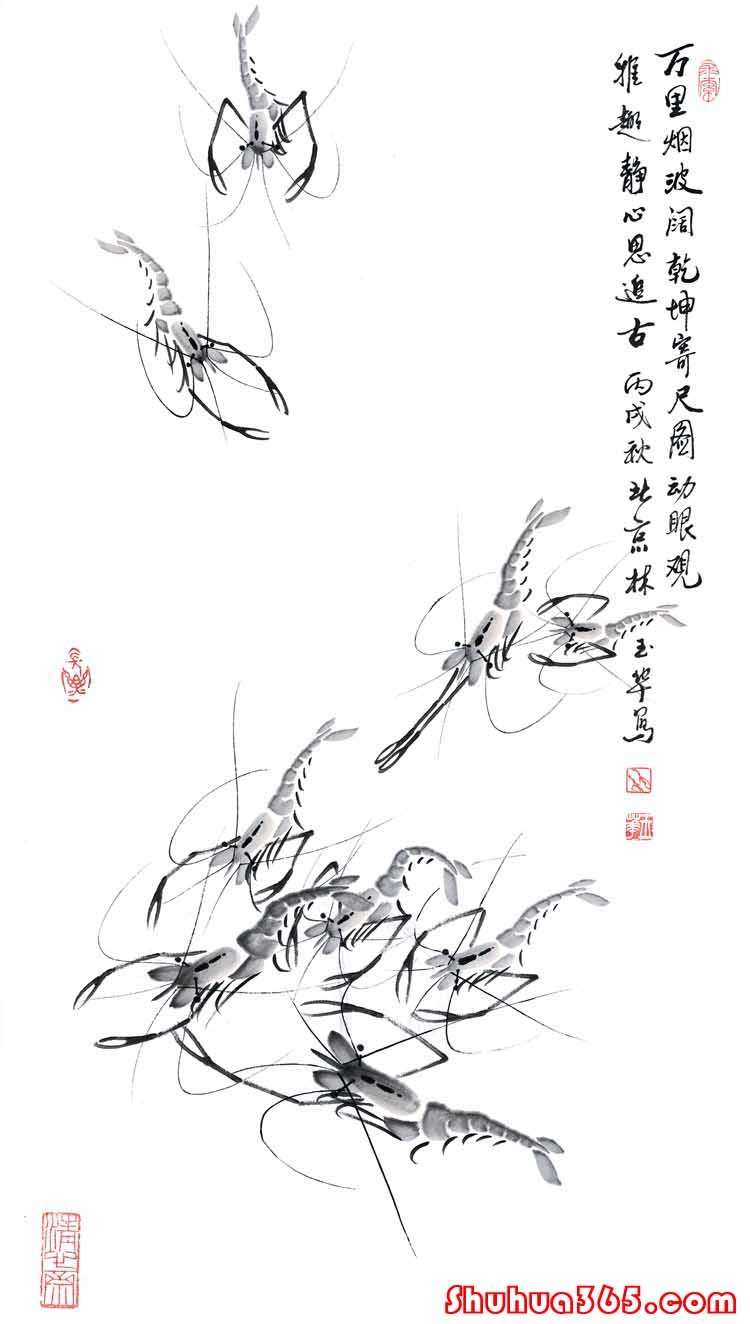 万里烟波阔乾坤寄尺图动眼观
雅趣静心思追古 丙戌秋北京林玉华写
Shuhua365.com